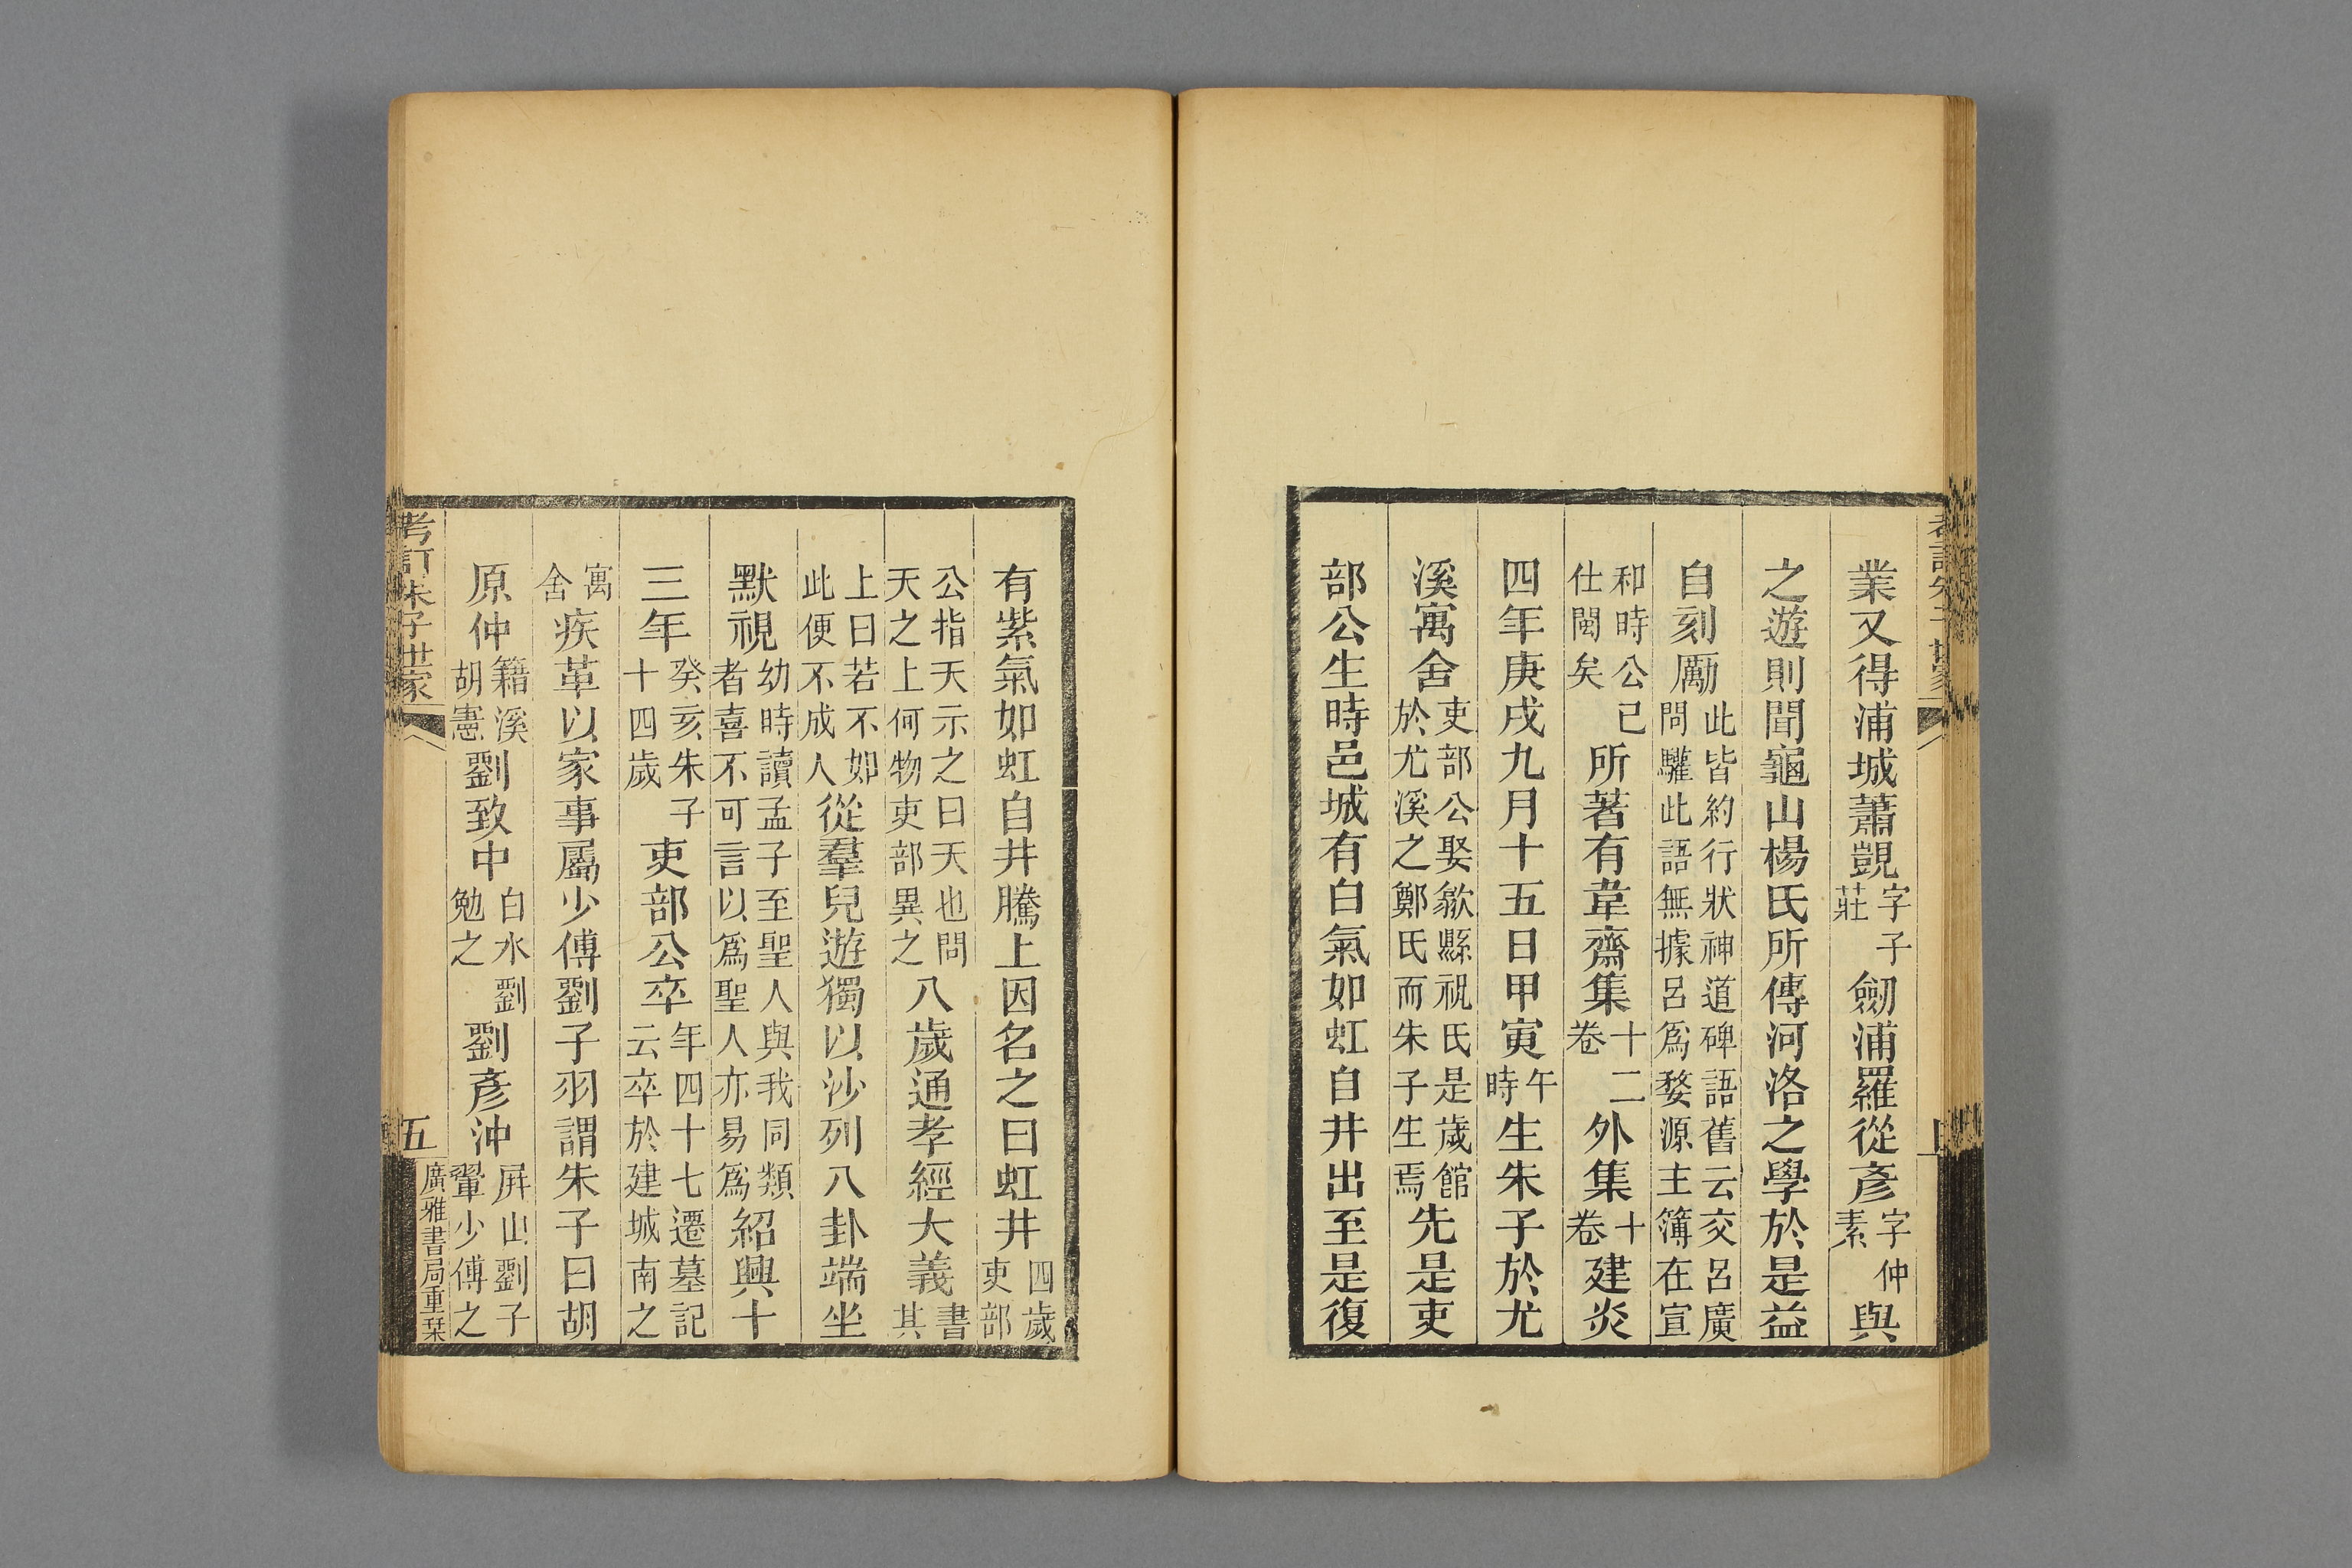 業又得浦城蕭顗字子莊劒浦羅從彥字仲素與
之遊則聞龜山楊氏所傳河洛之學於是益
自刻厲此皆約行狀神道碑語舊云交呂廣問驩此語無據呂爲婺源主簿在宣
和時公已仕閩矣所著有韋齋集十二卷外集十卷建炎
四年庚戌九月十五日甲寅午時生朱子於尤
溪寓舍吏部公娶歙縣祝氏是歲館於尤溪之鄭氏而朱子生焉先是吏
部公生時邑城有白氣如虹自井出至是復
有紫氣如虹自井騰上因名之曰虹井四歲吏部
公指天示之曰天也問天之上何物吏部異之八歲通孝經大義書其
上曰若不如此便不成人從羣兒遊獨以沙列八卦端坐
默視幼時讀孟子至聖人與我同類者喜不可言以爲聖人亦易爲紹興十
三年癸亥朱子十四歲吏部公卒年四十七遷墓記云卒於建城南之
寓舍疾革以家事屬少傅劉子羽謂朱子曰胡
原仲籍溪胡憲劉致中白水劉勉之劉彥沖屏山劉子翬少傅之
考訂朱子世家
五
廣雅書局重栞